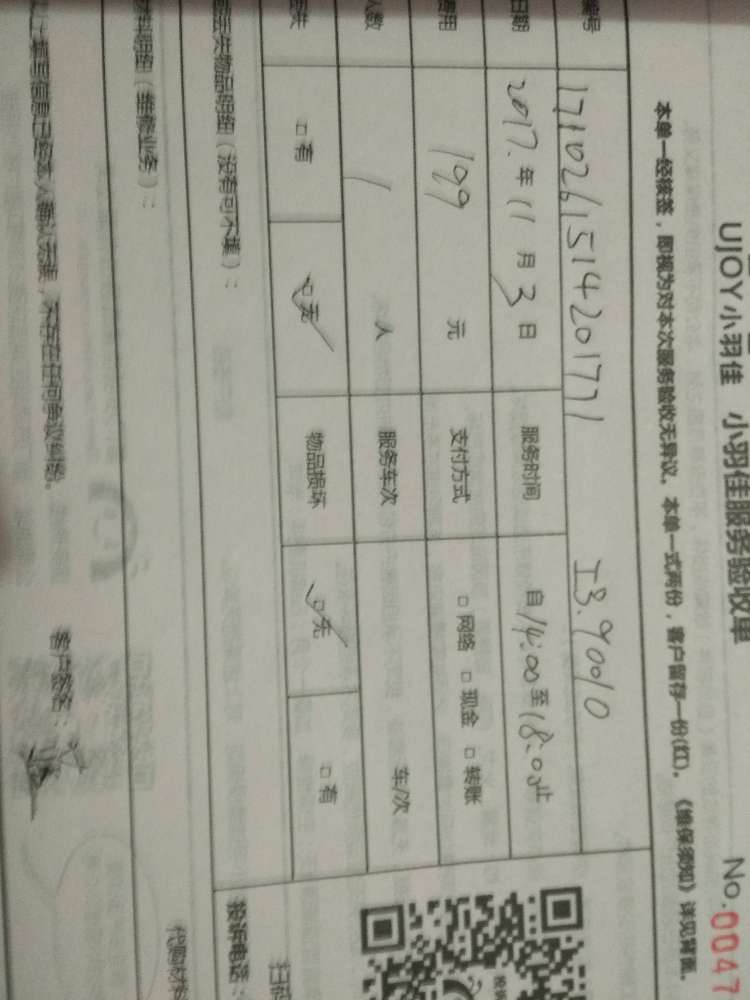 UJOY小羽佳 小羽佳服务验收单 No.0047
本单一经接签，即视为对本次服务验收无异议。本单一式两份，客户留存一份(红)。《维保须知》详见背面。
编号 1710261514201771 工号.90010
日期 2017.年11月3日 服务时间 自14:00至18:00止
费用 199 元 支付方式 □网络 □现金 □转账
人数 1 人 服务车次 车/次
丢失 □有 □无 物品损坏 □无 □有
丢失物品明细（没有可不填）：
投诉电话：
扫码
材料明细（维修业务）：
代购材料
以上填写信息已经本人确认无误，不存在任何争议纠纷。 客户签名：